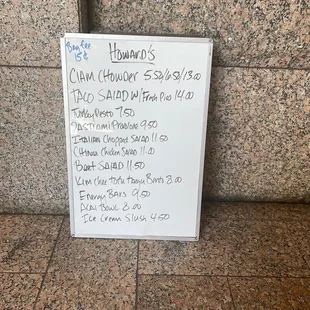 Bag Fee
15¢
Howard's
Clam Chowder 5.50/6.50/13.00
Taco Salad w/Fresh Pico 14.00
Turkey Pesto 7.50
Pastrami Provlone 9.50
Italian Chopped Salad 11.50
Chinese Chicken Salad 11.00
Beet Salad 11.50
Kim Chee Tofu Bowls 8.00
Energy Bars 9.50
Acai Bowl 8.00
Ice Cream Slush 4.50